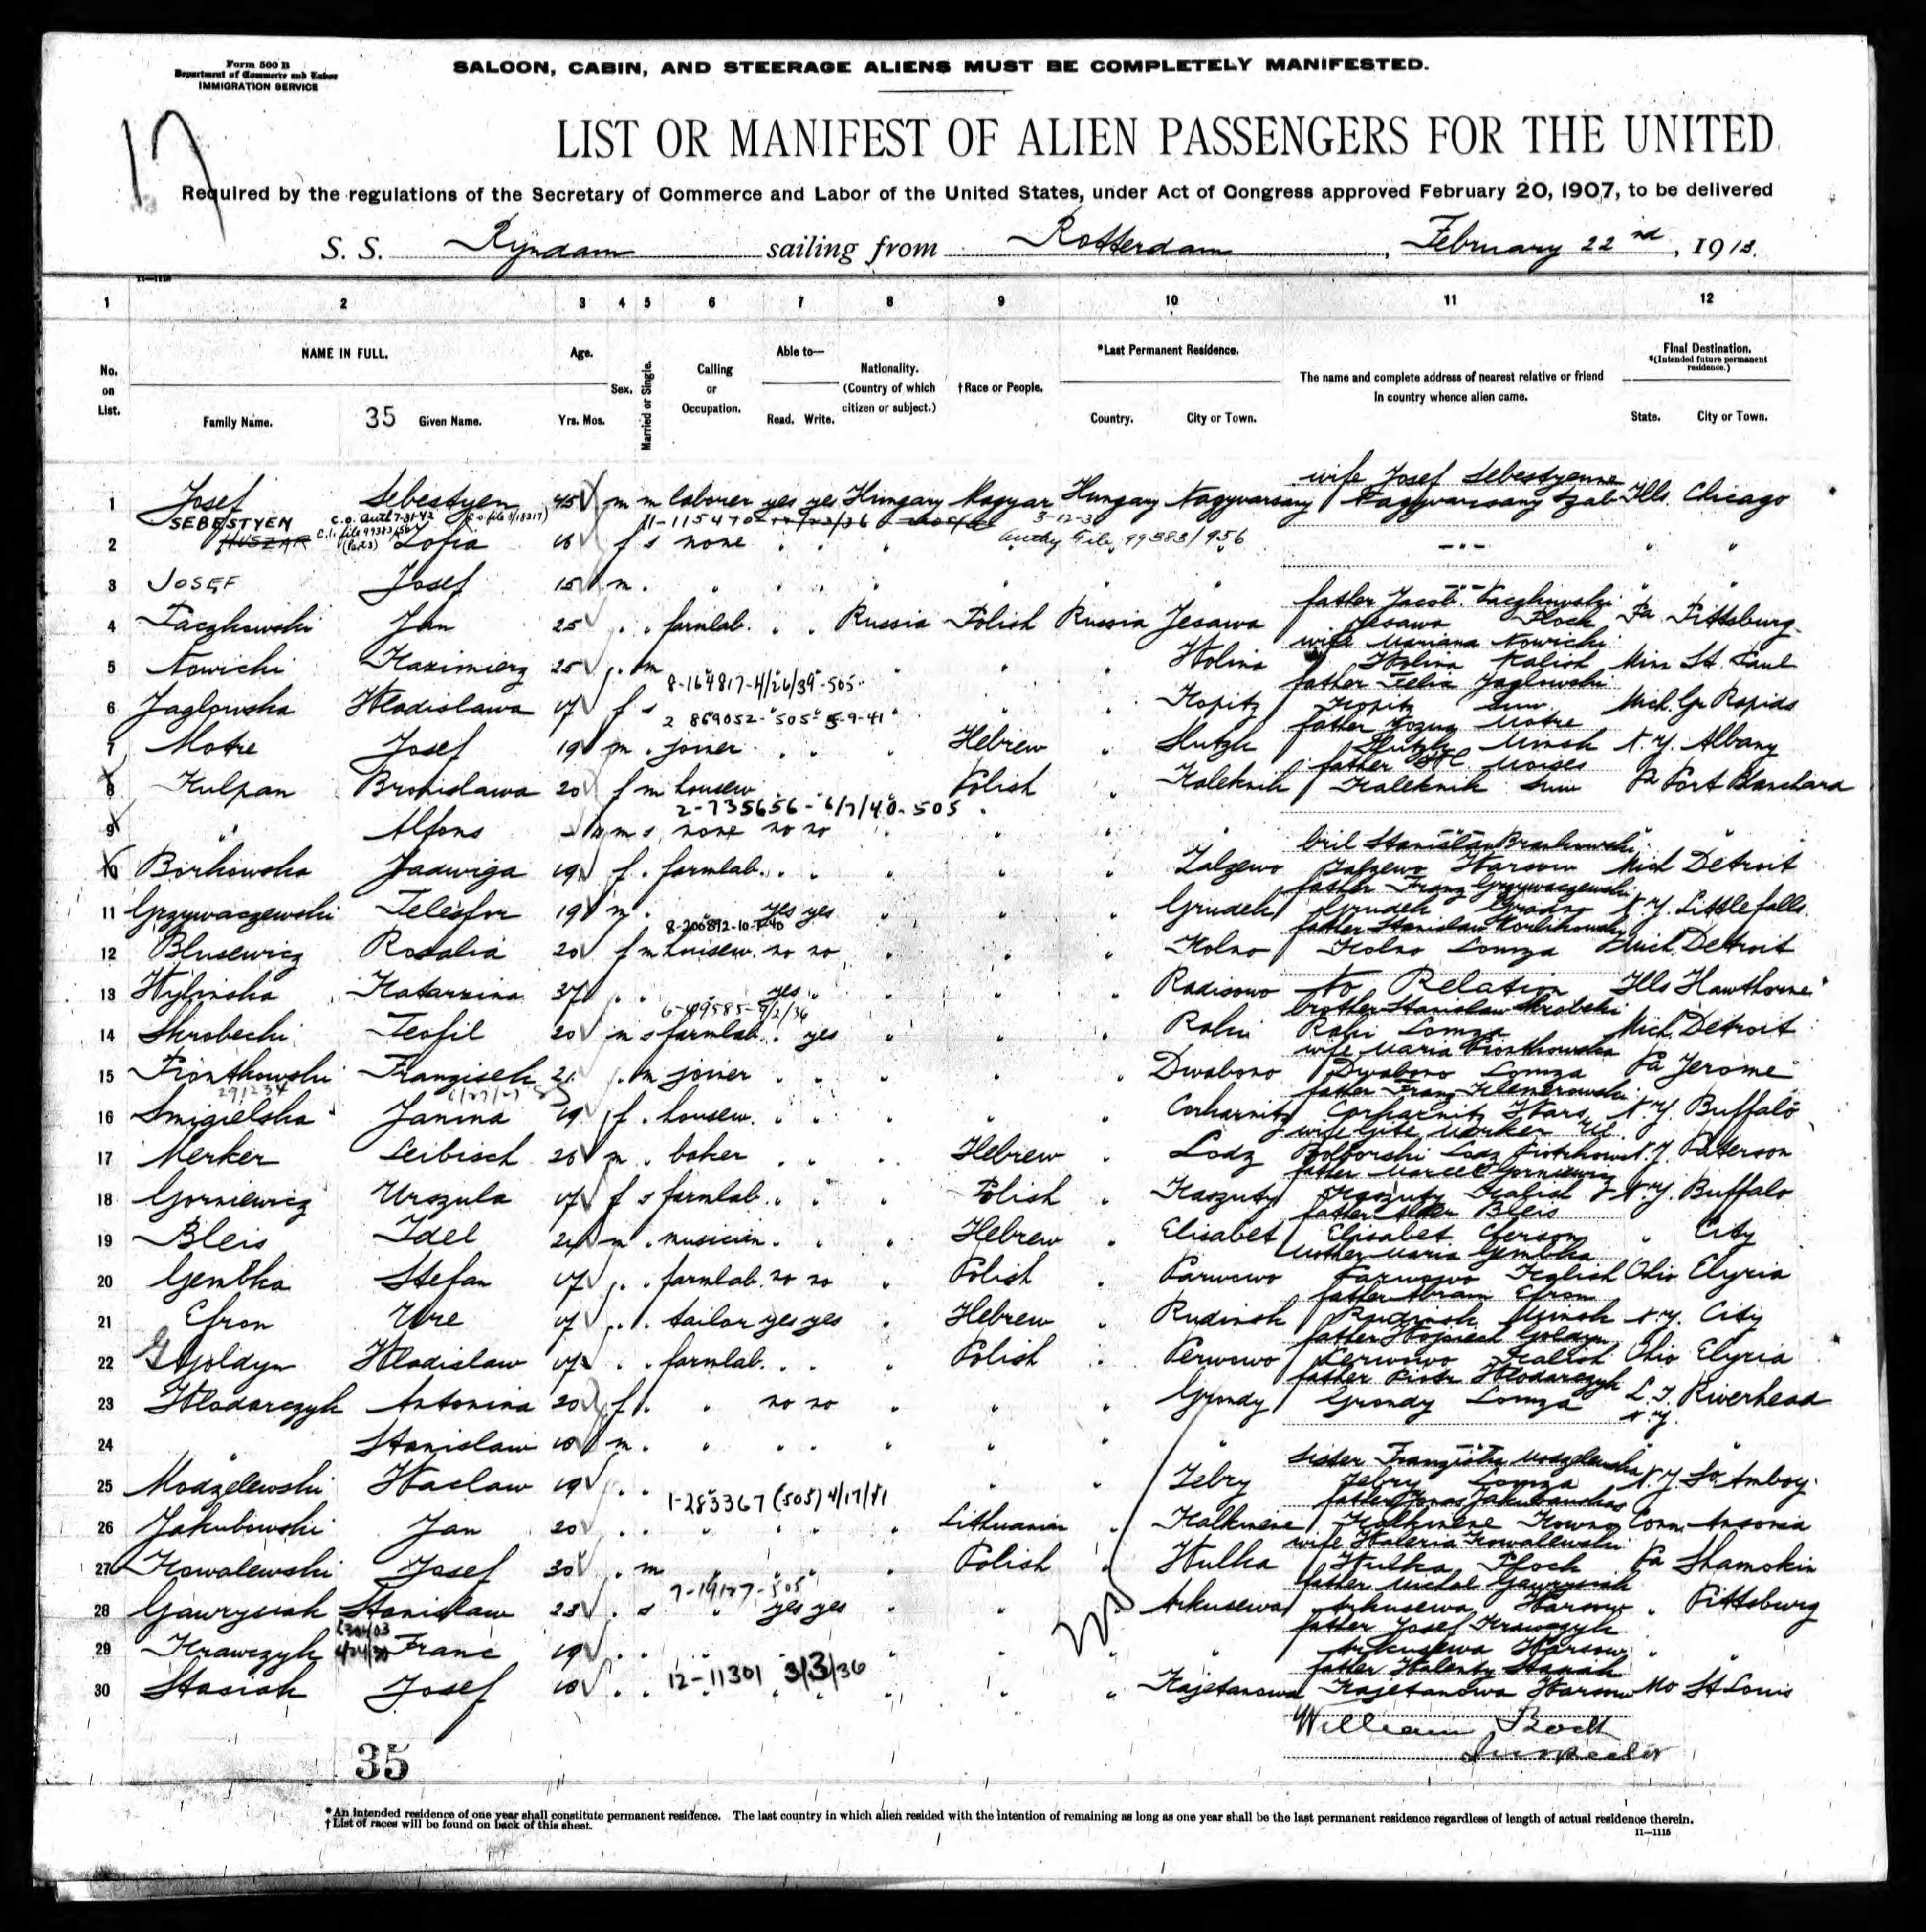 Form 500 B
Department of Commerce and Labor
IMMIGRATION SERVICE
SALOON, CABIN, AND STEERAGE ALIENS MUST BE COMPLETELY MANIFESTED.
17
LIST OR MANIFEST OF ALIEN PASSENGERS FOR THE UNITED
Required by the regulations of the Secretary of Commerce and Labor of the United States, under Act of Congress approved February 20, 1907, to be delivered
S. S. Ryndam sailing from Rotterdam, February 22nd, 1913.
11—1115
1 2 3 4 5 6 7 8 9 10 11 12
No. on List.
NAME IN FULL.
Family Name. 35 Given Name.
Age.
Yrs. Mos.
Sex.
Married or Single.
Calling or Occupation.
Able to—
Read. Write.
Nationality.
(Country of which citizen or subject.)
†Race or People.
*Last Permanent Residence.
Country. City or Town.
The name and complete address of nearest relative or friend
in country whence alien came.
Final Destination.
*(Intended future permanent residence.)
State. City or Town.
wife Josef Sebestyenne
1 Josef Sebestyen 45 m m laborer yes yes Hungary Magyar Hungary Nagyvarsany Nagyvarsany Szab Ills. Chicago
SEBESTYEN 11-115470 3-12-3
2 HUSZAR Zofia 16 f s none " " " 99383/956 " "
3 JOSEF Josef 15 m " " " " " " " " " "
father Jacob Paczkowski
4 Paczkowski Jan 25 " " farmlab. " " Russia Polish Russia Jesawa Jesawa Plock Pa Pittsburg
wife Mariana Nowicki
5 Nowicki Kazimierz 25 " m " " " " " " Wolina Wolina Kalisch Minn St. Paul
8-164817-4/26/39-505
father Felix Jaglowski
6 Jaglowska Wladislawa 17 f s " " " " " " Kopitz Kopitz Suw. Mich. Gr Rapids
2 869052-505-5-9-41
father Motre
7 Motre Josef 19 m " joiner " " " Hebrew " Slutzk Slutzk Minsk N.Y. Albany
father Moises
8 Kulpan Bronislawa 20 f m housew. " " " Polish " Kaleknik Kaleknik Suw Pa Port Blanchard
2-735656-6/7/40-505
9 " Alfons m s none no no " " " " " "
10 Borkowska Jadwiga 19 f " farmlab. " " " " " Zalzewo Zalzewo Warsow Mich Detroit
father Franz Grzywaczewski
11 Grzywaczewski Telesfor 19 m " " yes yes " " " Grudek Grudek Grodno N.Y. Littlefalls
father Stanislaw
12 Blusewicz Rosalia 20 f m housew. no no " " " Kolno Kolno Lomza Mich Detroit
13 Wylinska Katarzina 37 " " " yes " " " " Radisowo no Relation Ills Hawthorne
6-49585-9/2/36
brother Stanislaw Skrobecki
14 Skrobecki Teofil 20 m s farmlab. " yes " " " Rakii Rakii Lomza Mich Detroit
wife Maria Piontkowska
15 Piontkowski Franzisek 21 " m joiner " " " " " Dwabono Dwabono Lomza Pa Jerome
291234
father Franz
16 Smigielska Janina 19 f " housew. " " " " " Corharnitz Corharnitz Wars. N.Y. Buffalo
wife Gite Merker
17 Merker Leibisch 26 m " baker " " " Hebrew " Lodz Lodz N.J. Paterson
father Marcel Gorniewicz
18 Gorniewicz Urszula 17 f s farmlab. " " " Polish " Kaszuty Kaszuty Kalisch N.Y. Buffalo
father Bleis
19 Bleis Idel 21 m " musician " " " Hebrew " Elisabet Elisabet Cherson " City
mother Maria Gembka
20 Gembka Stefan 17 " " farmlab. no no " Polish " Parwowo Parwowo Kalish Ohio Elyria
father Abram Efron
21 Efron Ure 17 " " tailor yes yes " Hebrew " Rudinsk Rudinsk Minsk N.Y. City
father Wojciech Goldyn
22 Goldyn Wladislaw 17 " " farmlab. " " " Polish " Perwowo Perwowo Kalish Ohio Elyria
father Piotr Wlodarczyk
23 Wlodarczyk Antonina 20 f " " no no " " " Grondy Grondy Lomza L.I. Riverhead
N.Y.
24 " Stanislaw 18 m " " " " " " " " "
sister Franziska Modzelewska
25 Modzelewski Waclaw 19 " " " " " " " " Zebry Zebry Lomza N.Y. So. Amboy
1-283367 (505) 4/17/41
father Jonas Jakubauskas
26 Jakubowski Jan 20 " " " " " " Lithuanian " Kalkinene Kalkinene Kowno Conn. Ansonia
wife Waleria Kowalewski
27 Kowalewski Josef 30 " m " " " " Polish " Wulka Wulka Plock Pa Shamokin
father Michal Gawrysiak
28 Gawrysiak Stanislaw 23 " s " yes yes " " " Arkusewa Arkusewa Warsow " Pittsburg
father Josef Krawczyk
29 Krawczyk Franc 19 " " " " " " " " " Arkusewa Warsow " "
12-11301 3/3/36
father Walenty Stasiak
30 Stasiak Josef 18 " " " " " " " " Kajetanowa Kajetanowa Warsow Mo St Louis
William
Inspector
35
*An intended residence of one year shall constitute permanent residence. The last country in which alien resided with the intention of remaining as long as one year shall be the last permanent residence regardless of length of actual residence therein.
†List of races will be found on back of this sheet.
11—1115